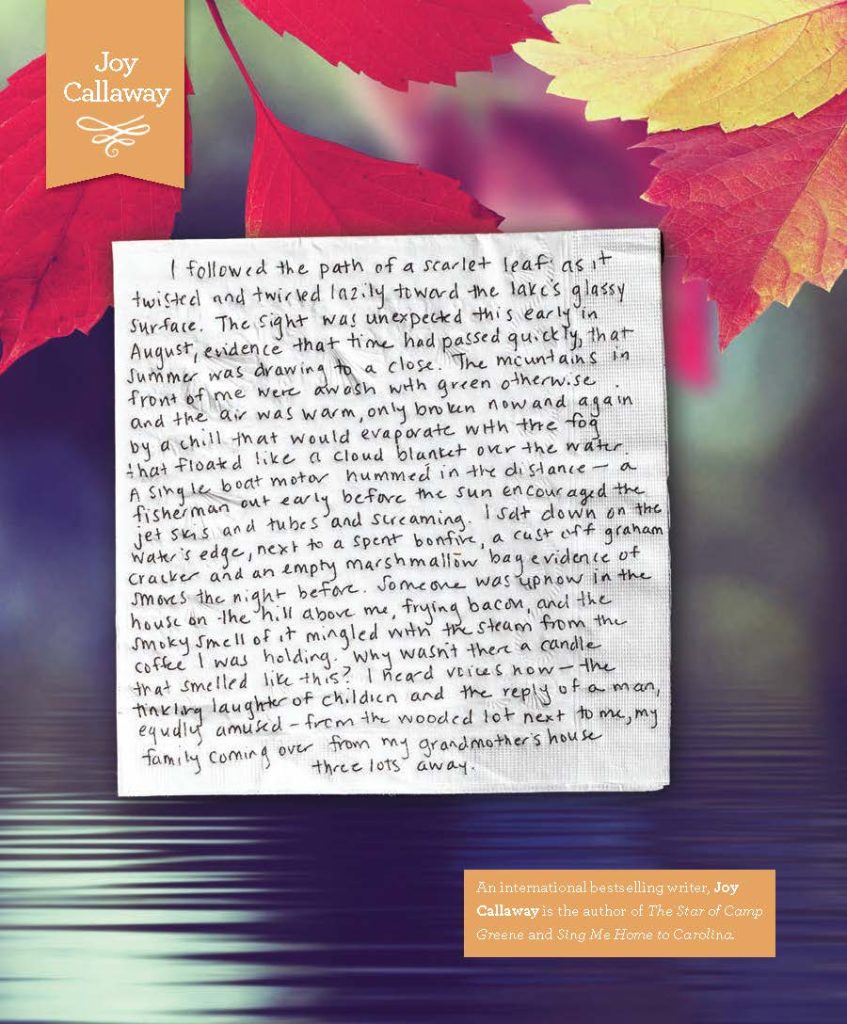 Joy
Callaway
I followed the path of a scarlet leaf as it
twisted and twirled lazily toward the lake's glassy
surface. The sight was unexpected this early in
August, evidence that time had passed quickly, that
summer was drawing to a close. The mountains in
front of me were awash with green otherwise
and the air was warm, only broken now and again
by a chill that would evaporate with the fog
that floated like a cloud blanket over the water.
A single boat motor hummed in the distance – a
fisherman out early before the sun encouraged the
jet skis and tubes and screaming. I sat down on the
water's edge, next to a spent bonfire, a cast off graham
cracker and an empty marshmallow bag evidence of
smores the night before. Someone was up now in the
house on the hill above me, frying bacon, and the
smoky smell of it mingled with the steam from the
coffee I was holding. Why wasn't there a candle
that smelled like this? I heard voices now – the
tinkling laughter of children and the reply of a man,
equally amused – from the wooded lot next to me, my
family coming over from my grandmother's house
three lots away.
An international bestselling writer, Joy
Callaway is the author of The Star of Camp
Greene and Sing Me Home to Carolina.